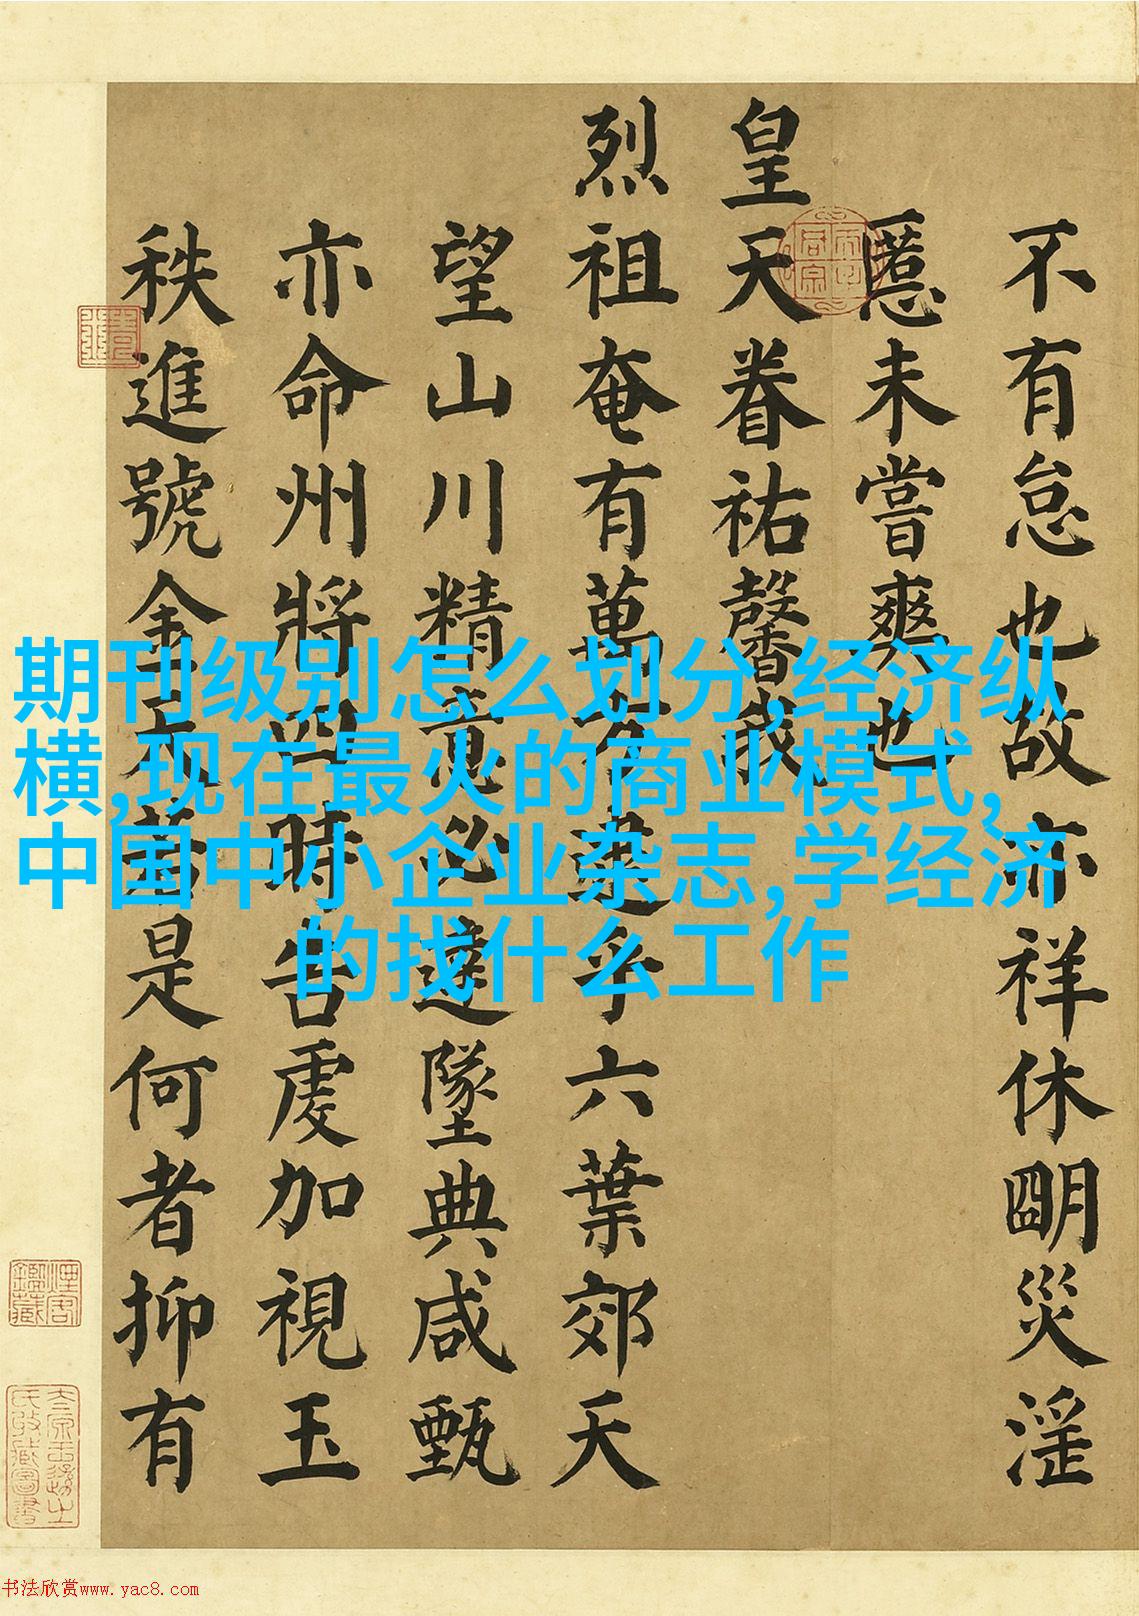 不有怠也故亦祥休朙災淫
慝未嘗爽也
皇天眷祐馨我
烈祖奄有萬方逮乎六葉郊天
望山川精意必達墜典咸甄
亦命州將四時告虔加視玉
秩進號金天是何者抑有
期刊级别怎么划分,经济纵
横,现在最火的商业模式,
中国中小企业杂志,学经济
的找什么工作
书法欣赏www.yac8.com